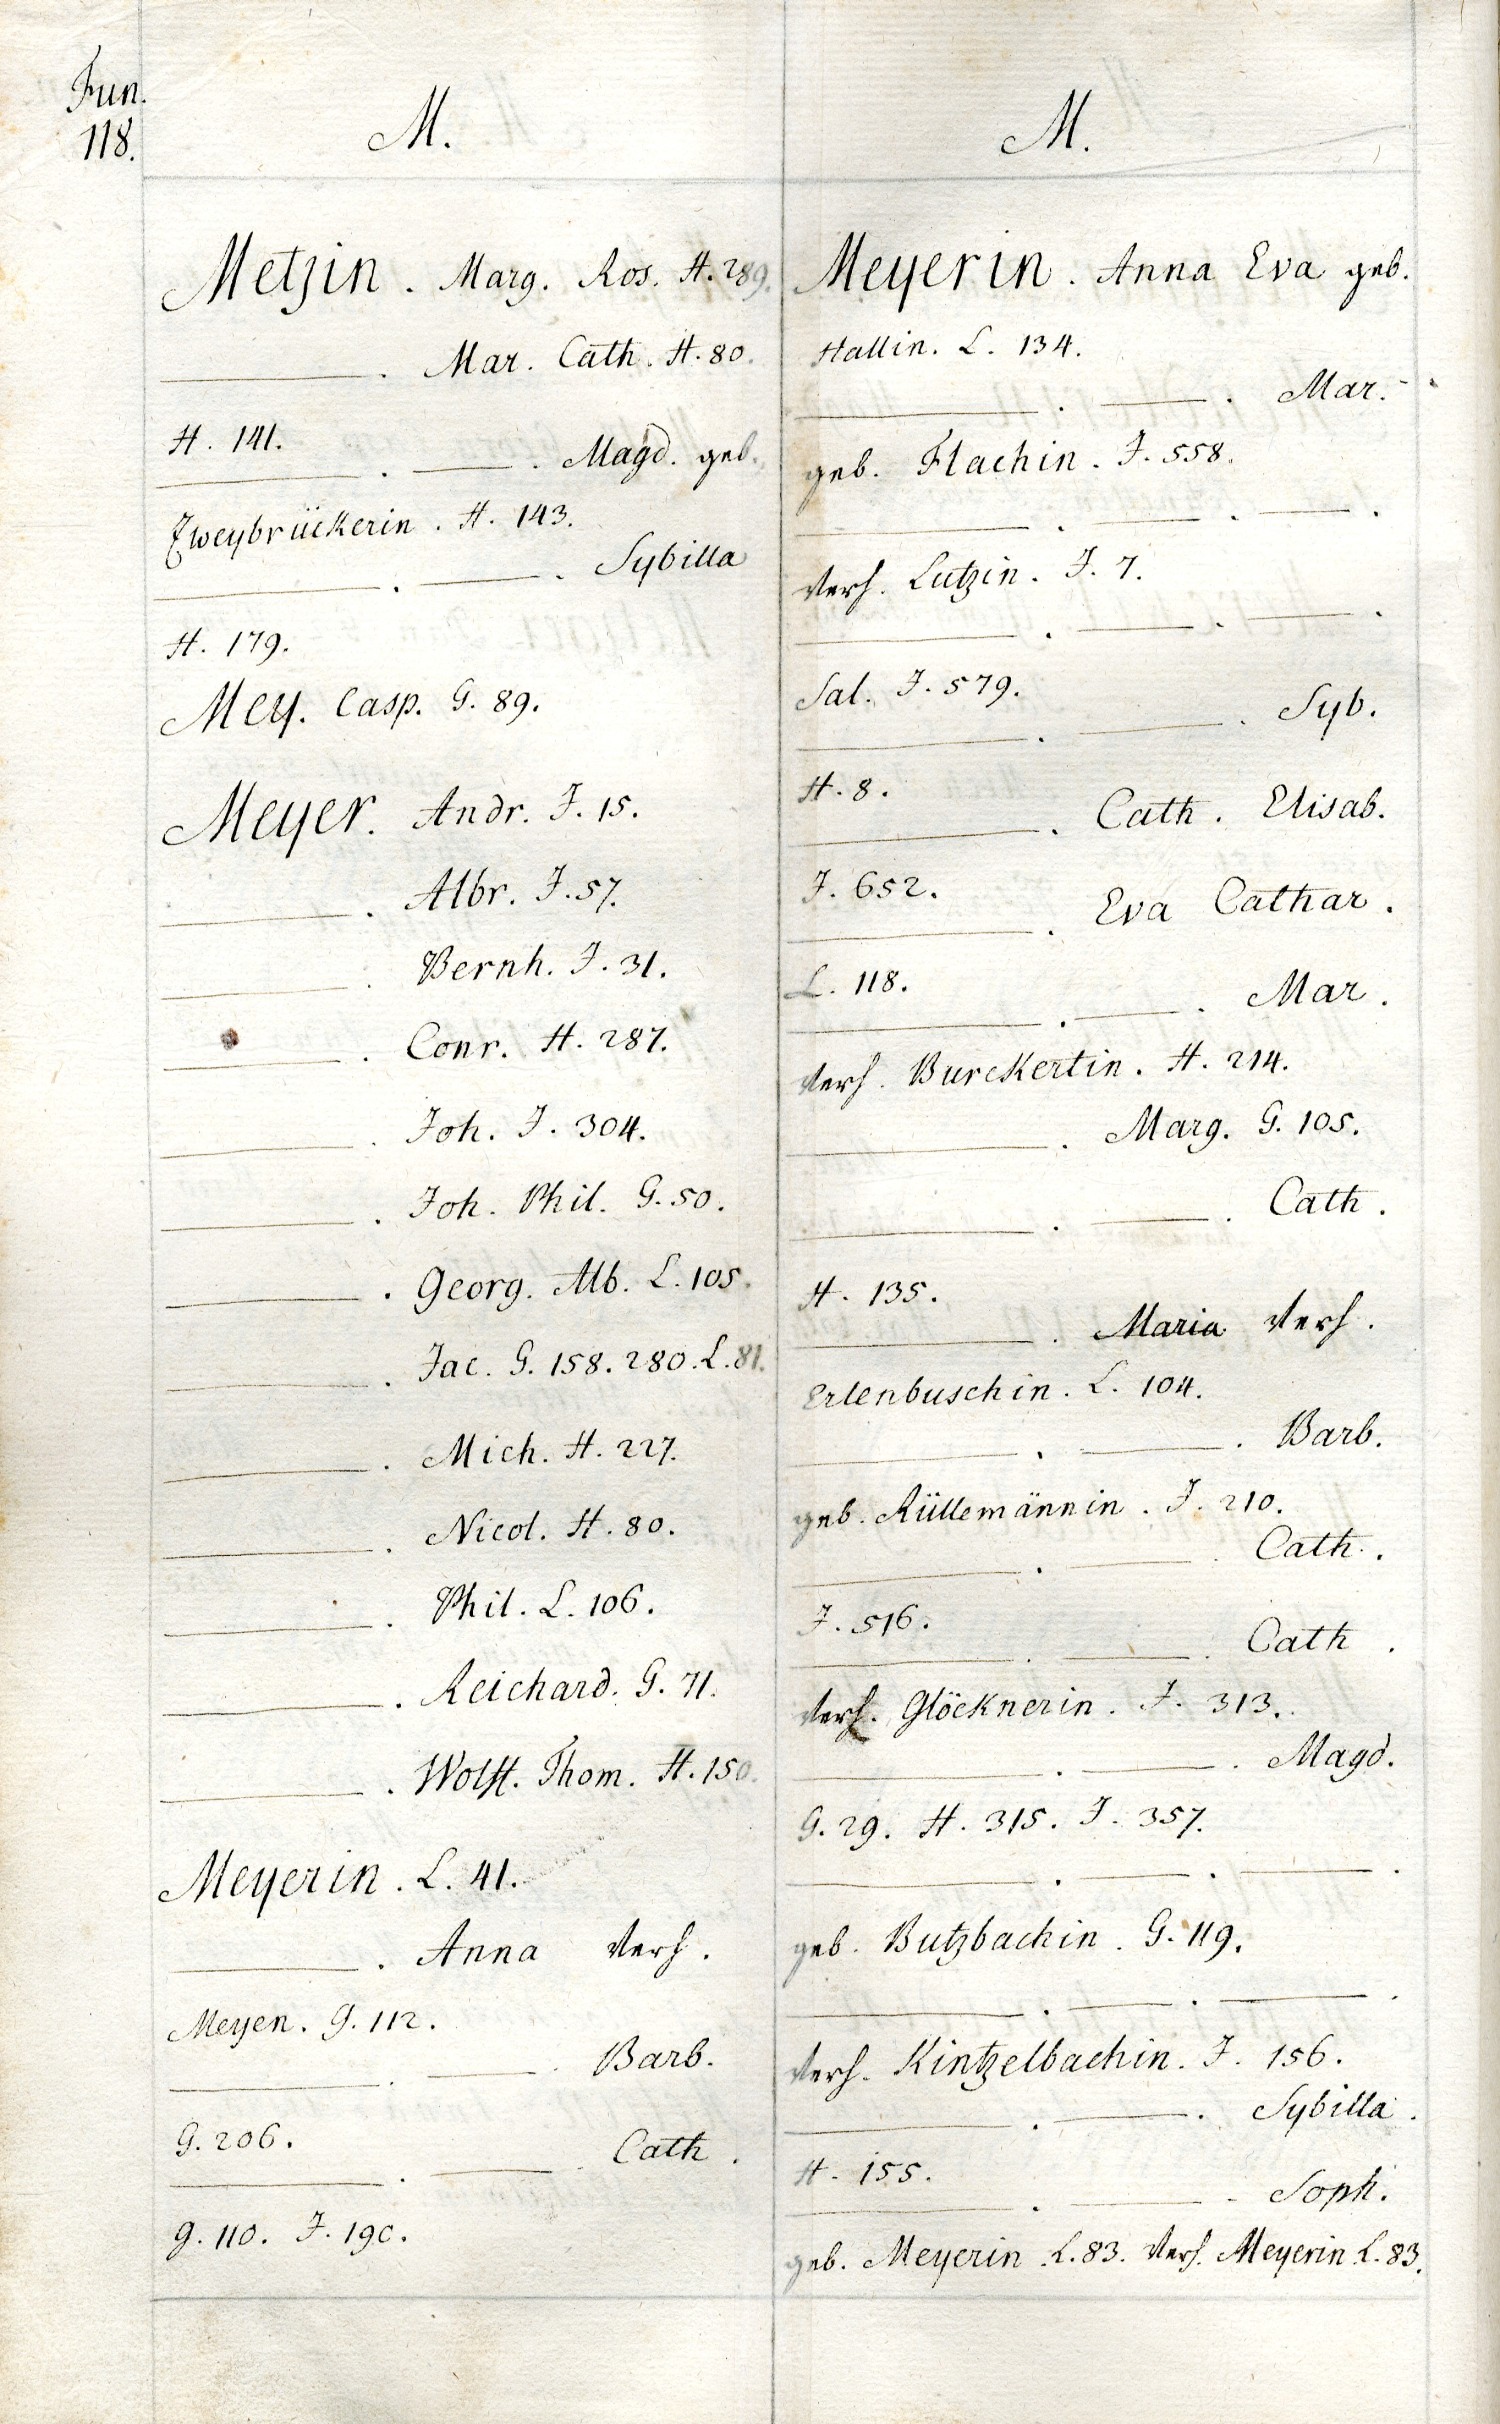 Fun.
118.
M.
Metzin. Marg. Ros. H. 289.
———. Mar. Cath. H. 80.
H. 141.
———. ———. Magd. geb.
Zweybrückerin. H. 143.
———. ———. Sybilla
H. 179.
Mey. Casp. G. 89.
Meyer. Andr. J. 15.
———. Albr. J. 57.
———. Bernh. J. 31.
———. Conr. H. 287.
———. Joh. J. 304.
———. Joh. Phil. G. 50.
———. Georg. Alb. L. 105.
———. Jac. G. 158. 280. L. 81.
———. Mich. H. 227.
———. Nicol. H. 80.
———. Phil. L. 106.
———. Reichard. G. 71.
———. Wolff. Thom. H. 150.
Meyerin. L. 41.
———. Anna Verh.
Meyen. G. 112.
———. ———. Barb.
G. 206.
———. ———. Cath.
G. 110. J. 190.
M.
Meyerin. Anna Eva geb.
Hallin. L. 134.
———. ———. Mar.
geb. Flachin. J. 558.
———. ———. ———.
Verh. Lutzin. J. 7.
———. ———. ———.
Sal. J. 579.
———. ———. Syb.
H. 8.
———. Cath. Elisab.
J. 652.
———. Eva Cathar.
L. 118.
———. ———. Mar.
Verh. Burckertin. H. 214.
———. Marg. G. 105.
———. ———. Cath.
H. 135.
———. Maria Verh.
Erlenbuschin. L. 104.
———. ———. Barb.
geb. Rüllemännin. J. 210.
———. ———. Cath.
J. 516.
———. ———. Cath.
Verh. Glöcknerin. J. 313.
———. ———. Magd.
G. 29. H. 315. J. 357.
———. ———. ———.
geb. Butzbachin. G. 119.
———. ———. ———.
Verh. Kintzelbachin. J. 156.
———. ———. Sybilla.
H. 155.
———. ———. Soph.
geb. Meyerin L. 83. Verh. Meyerin L. 83.